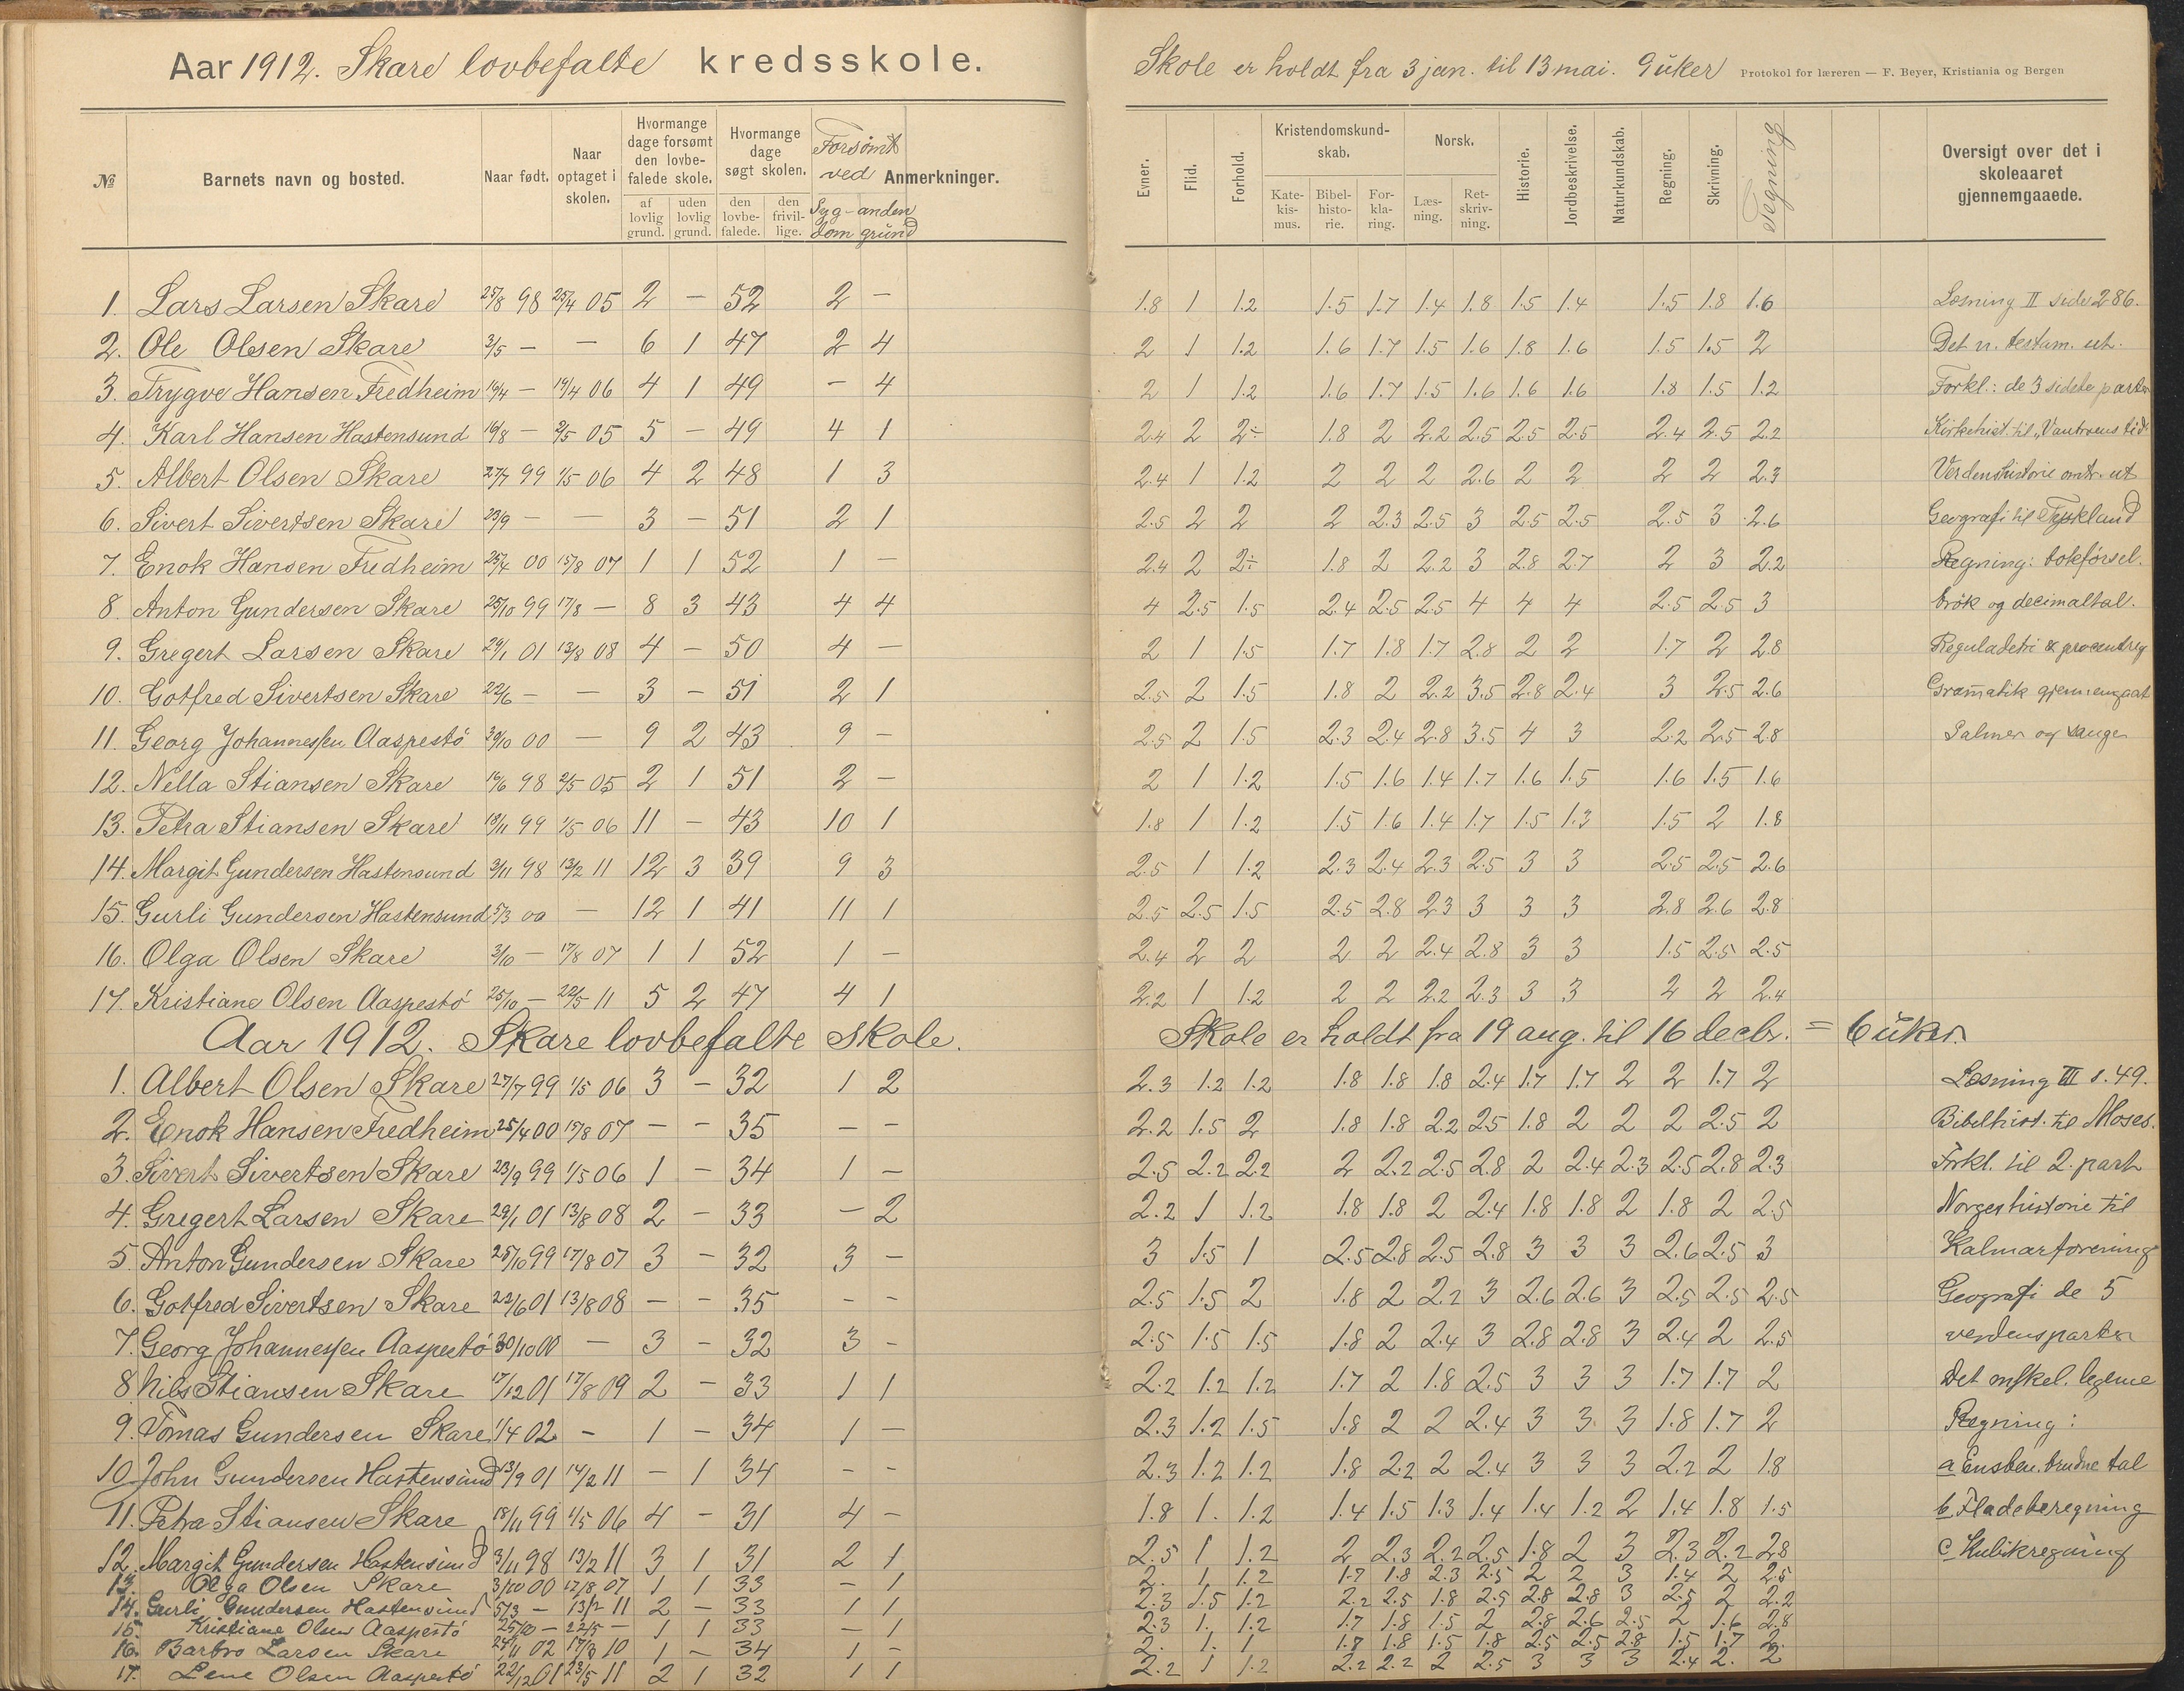 Aar 1912. Skare lovbefalte kredsskole.
№ Barnets navn og bosted. Naar født. Naar optaget i skolen. Hvormange dage forsømt den lovbefalede skole. af lovlig grund. uden lovlig grund. Hvormange dage søgt skolen. den lovbefalede. den frivillige. Forsømt ved Sygdom anden grund Anmerkninger.
1. Lars Larsen Skare 25/8 98 25/4 05 2 – 52 2 –
2. Ole Olsen Skare 3/5 – – 6 1 47 2 4
3. Trygve Hansen Fredheim 19/4 – 19/4 06 4 1 49 – 4
4. Karl Hansen Hastensund 16/8 – 2/5 05 5 – 49 4 1
5. Albert Olsen Skare 27/7 99 1/5 06 4 2 48 1 3
6. Sivert Sivertsen Skare 23/9 – – 3 – 51 2 1
7. Enok Hansen Fredheim 25/4 00 15/8 07 1 1 52 1 –
8. Anton Gundersen Skare 25/10 99 17/8 – 8 3 43 4 4
9. Gregert Larsen Skare 29/1 01 13/8 08 4 – 50 4 –
10. Gotfred Sivertsen Skare 22/6 – – 3 – 51 2 1
11. Georg Johannessen Aaspestö 30/10 00 – 9 2 43 9 –
12. Nella Stiansen Skare 16/6 98 2/5 05 2 1 51 2 –
13. Petra Stiansen Skare 18/11 99 1/5 06 11 – 43 10 1
14. Margit Gundersen Hastensund 3/11 98 13/2 11 12 3 39 9 3
15. Gurli Gundersen Hastensund 5/3 00 – 12 1 41 11 1
16. Olga Olsen Skare 3/10 – 17/8 07 1 1 52 1 –
17. Kristiane Olsen Aaspestö 25/10 – 22/5 11 5 2 47 4 1
Aar 1912. Skare lovbefalte skole.
1. Albert Olsen Skare 27/7 99 1/5 06 3 – 32 1 2
2. Enok Hansen Fredheim 25/4 00 17/8 07 – – 35 – –
3. Sivert Sivertsen Skare 23/9 99 1/5 06 1 – 34 1 –
4. Gregert Larsen Skare 29/1 01 13/8 08 2 – 33 – 2
5. Anton Gundersen Skare 25/10 99 17/8 07 3 – 32 3 –
6. Gotfred Sivertsen Skare 22/6 01 13/8 08 – – 35 – –
7. Georg Johannessen Aaspestö 30/10 00 – 3 – 32 3 –
8. Nils Stiansen Skare 17/12 01 17/8 09 2 – 33 1 1
9. Tomas Gundersen Skare 1/4 02 – 1 – 34 1 –
10. John Gundersen Hastensund 13/9 01 14/2 11 – 1 34 – –
11. Petra Stiansen Skare 18/11 99 1/5 06 4 – 31 4 –
12. Margit Gundersen Hastensund 3/11 98 13/2 11 3 1 31 2 1
13. Olga Olsen Skare 3/10 00 17/8 07 1 1 33 – 1
14. Gurli Gundersen Hastensund 5/3 – 13/2 11 2 – 33 1 1
15. Kristiane Olsen Aaspestö 25/10 – 22/5 – 1 1 33 – 1
16. Barbro Larsen Skare 24/11 02 17/8 10 1 – 34 1 –
17. Lene Olsen Aaspestö 22/12 01 23/5 11 2 1 32 1 1
Skole er holdt fra 3 jan. til 13 mai. 9 uker Protokol for læreren — F. Beyer, Kristiania og Bergen
Evner. Flid. Forhold. Kristendomskundskab. Katekismus. Bibelhistorie. Forklaring. Norsk. Læsning. Retskrivning. Historie. Jordbeskrivelse. Naturkundskab. Regning. Skrivning. Tegning Oversigt over det i skoleaaret gjennemgaaede.
1.8 1 1.2 1.5 1.7 1.4 1.8 1.5 1.4 1.5 1.8 1.6 Læsning II side 286.
2 1 1.2 1.6 1.7 1.5 1.6 1.8 1.6 1.5 1.5 2 Det n. testam. ut.
2 1 1.2 1.6 1.7 1.5 1.6 1.6 1.6 1.8 1.5 1.2 Forkl: de 3 sidste parter
2.4 2 2÷ 1.8 2 2.2 2.5 2.5 2.5 2.4 2.5 2.2 Kirkehist. til „Vantroens tid"
2.4 1 1.2 2 2 2 2.6 2 2 2 2 2.3 Verdenshistorie omtr. ut
2.5 2 2 2 2.3 2.5 3 2.5 2.5 2.5 3 2.6 Geografi til Tyskland
2.4 2 2÷ 1.8 2 2.2 3 2.8 2.7 2 3 2.2 Regning: bokførsel.
4 2.5 1.5 2.4 2.5 2.5 4 4 4 2.5 2.5 3 brök og decimaltal.
2 1 1.5 1.7 1.8 1.7 2.8 2 2 1.7 2 2.8 Reguladetri & procentreg
2.5 2 1.5 1.8 2 2.2 3.5 2.8 2.4 3 2.5 2.6 Gramatik gjennemgaat
2.5 2 1.5 2.3 2.4 2.8 3.5 4 3 2.2 2.5 2.8 Salmer og sange
2 1 1.2 1.5 1.6 1.4 1.7 1.6 1.5 1.6 1.5 1.6
1.8 1 1.2 1.5 1.6 1.4 1.7 1.5 1.3 1.5 2 1.8
2.5 1 1.2 2.3 2.4 2.3 2.5 3 3 2.5 2.5 2.6
2.5 2.5 1.5 2.5 2.8 2.3 3 3 3 2.8 2.6 2.8
2.4 2 2 2 2 2.4 2.8 3 3 1.5 2.5 2.5
2.2 1 1.2 2 2 2.2 2.3 3 3 2 2 2.4
Skole er holdt fra 19 aug. til 16 decbr. = 6 uker.
2.3 1.2 1.2 1.8 1.8 1.8 2.4 1.7 1.7 2 2 1.7 2 Læsning III s. 49.
2.2 1.5 2 1.8 1.8 2.2 2.5 1.8 2 2 2 2.5 2 Bibelhist. til Moses.
2.5 2.2 2.2 2 2.2 2.5 2.8 2 2.4 2.3 2.5 2.8 2.3 Forkl. til 2. part
2.2 1 1.2 1.8 1.8 2 2.4 1.8 1.8 2 1.8 2 2.5 Norgeshistorie til
3 1.5 1 2.5 2.8 2.5 2.8 3 3 3 2.6 2.5 3 Kalmarforening
2.5 1.5 2 1.8 2 2.2 3 2.6 2.6 3 2.5 2.5 2.5 Geografi de 5
2.5 1.5 1.5 1.8 2 2.4 3 2.8 2.8 3 2.4 2 2.5 verdensparter
2.2 1.2 1.2 1.7 2 1.8 2.5 3 3 3 1.7 1.7 2 Det mskel. legeme
2.3 1.2 1.5 1.8 2 2 2.4 3 3 3 1.8 1.7 2 Regning:
2.3 1.2 1.2 1.8 2.2 2 2.4 3 3 3 2.2 2 1.8 a Ensben. brudne tal
1.8 1. 1.2 1.4 1.5 1.3 1.4 1.4 1.2 2 1.4 1.8 1.5 b Fladeberegning
2.5 1 1.2 2 2.3 2.2 2.5 1.8 2 3 2.3 2.2 2.8 c Kubikregning
2. 1 1.2 1.7 1.8 2.3 2.5 2 2 3 1.4 2 2.5
2.3 1.5 1.2 2.2 2.5 1.8 2.5 2.8 2.8 3 2.5 2 2.2
2.3 1. 1.2 1.7 1.8 1.5 2 2.8 2.6 2.5 2 1.6 2.8
2. 1. 1 1.7 1.8 1.5 1.8 2.5 2.5 2.8 1.5 1.7 2.
2.2 1 1.2 2.2 2.2 2 2.5 3 3 3 2.4 2. 2